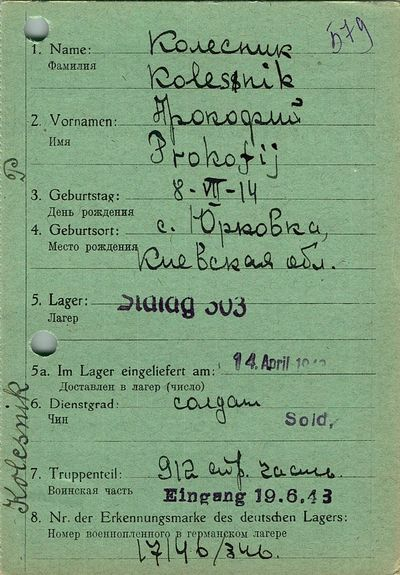 579
1. Name: Колесник
Фамилия
Kolessnik
2. Vornamen: Прокофий
Имя
Prokofij
3. Geburtstag: 8-VII-14
День рождения
4. Geburtsort: с. Юрковка,
Место рождения
Киевская обл.
5. Lager: Stalag 303
Лагер
5a. Im Lager eingeliefert am: 14. April
Доставлен в лагер (число)
6. Dienstgrad: солдат
Чин
Sold.
7. Truppenteil: 912 стр. часть.
Воинская часть
Eingang 19.6.43
8. Nr. der Erkennungsmarke des deutschen Lagers:
Номер военнопленного в германском лагере
Kolesnik P